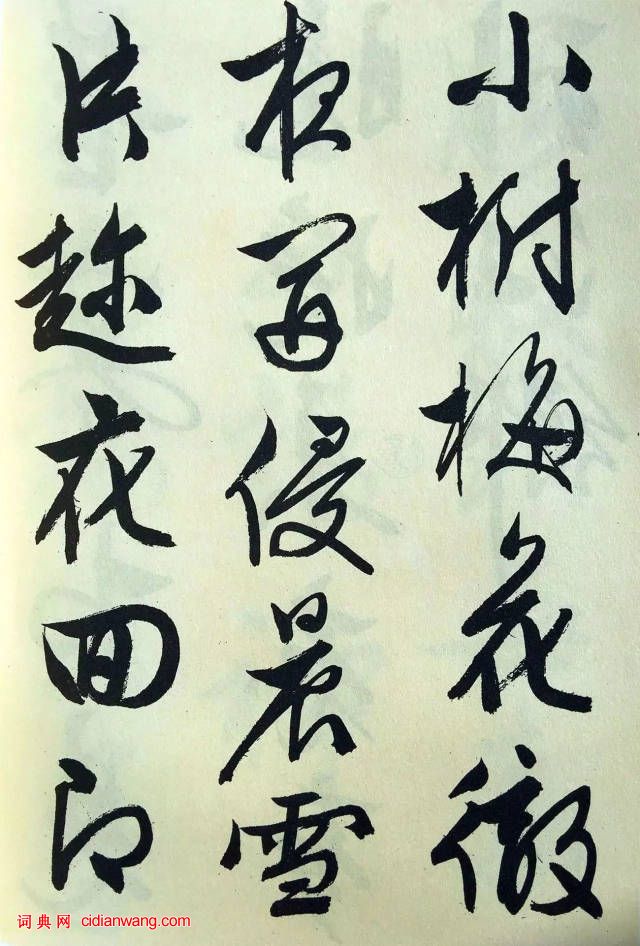 小樹梅花徹
夜開侵晨雪
片趂花囬即
词典网 cidianwang.com